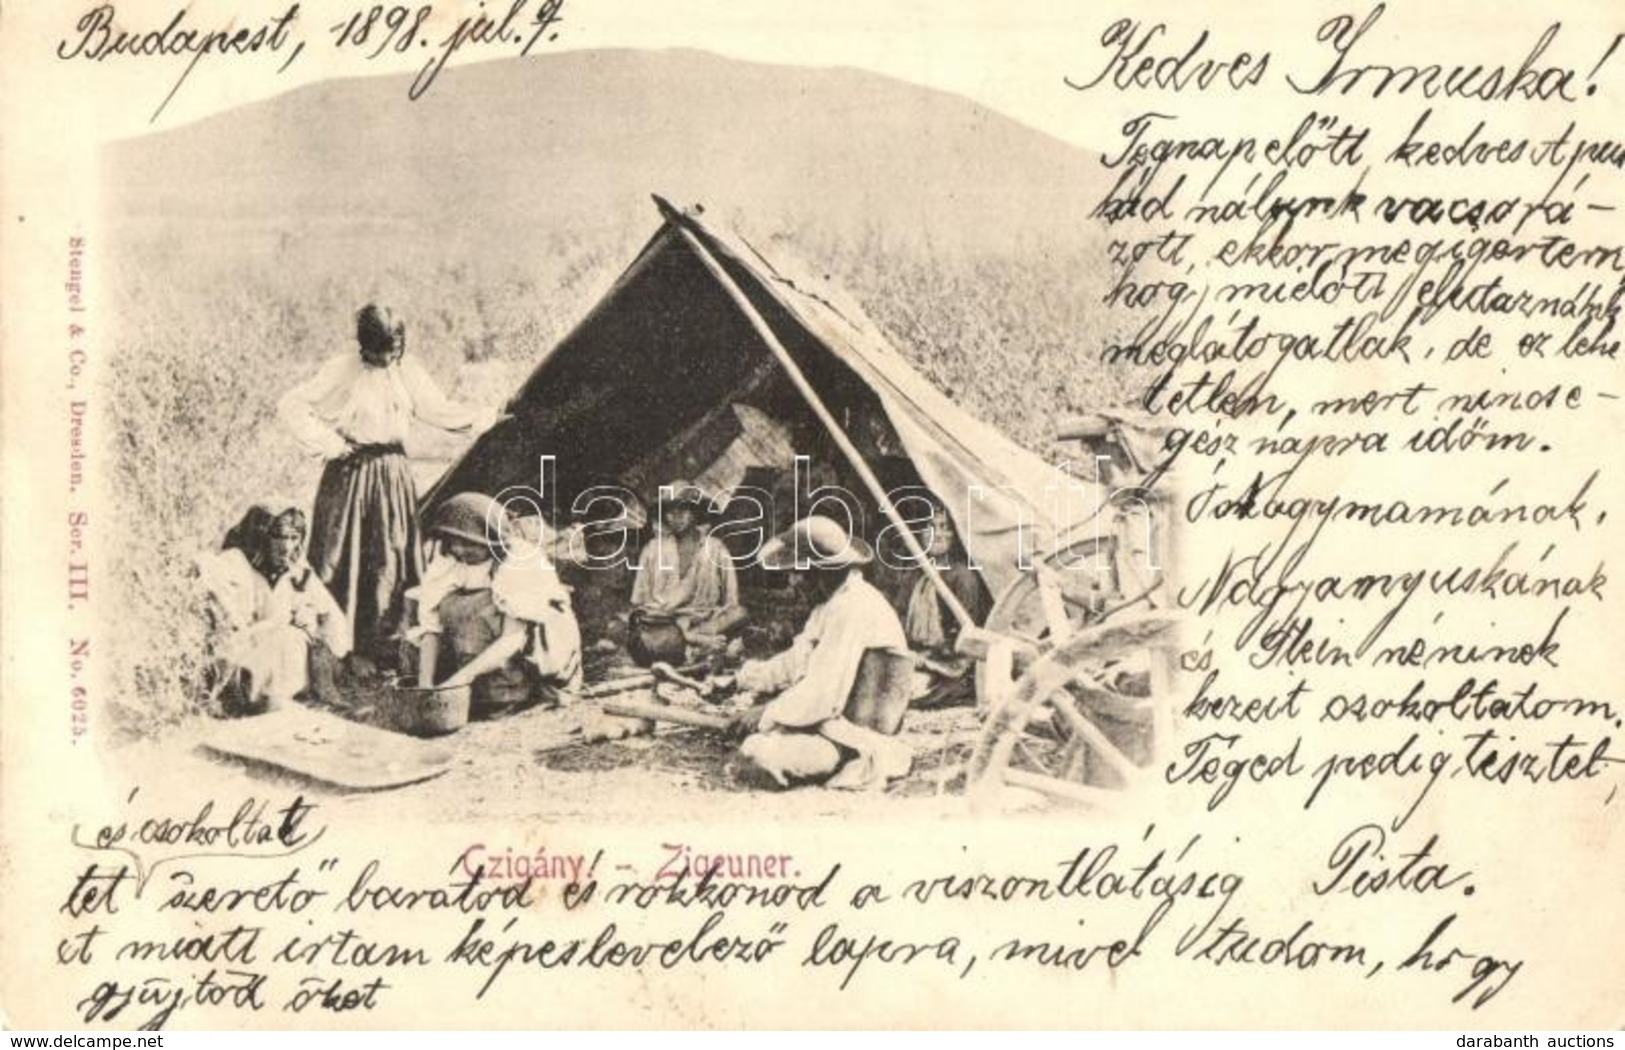 Budapest, 1898. jul. 9.
Kedves Yrmuska!
Tegnapelőtt kedves Apus
kád nálunk vacsorá-
zott, ekkor megigertem,
hogy midőtt elutaznátok
meglátogatlak, de ez lehe
tetlen, mert nincs e-
gész napra időm.
Nagymamának,
Nagyamyuskának
és Stein néninek
kezeit csokoltatom.
Téged pedig tisztel,
és csokoltat
tet szerető barátod és rokkonod a viszontlátásig Pista.
miatt irtam képeslevelező lapra, mivel tudom, hogy
gyüjtöd őket
Czigány! - Zigeuner.
Stengel & Co., Dresden. Ser. III. No. 6025.
darabanth
www.delcampe.net
darabanth auctions